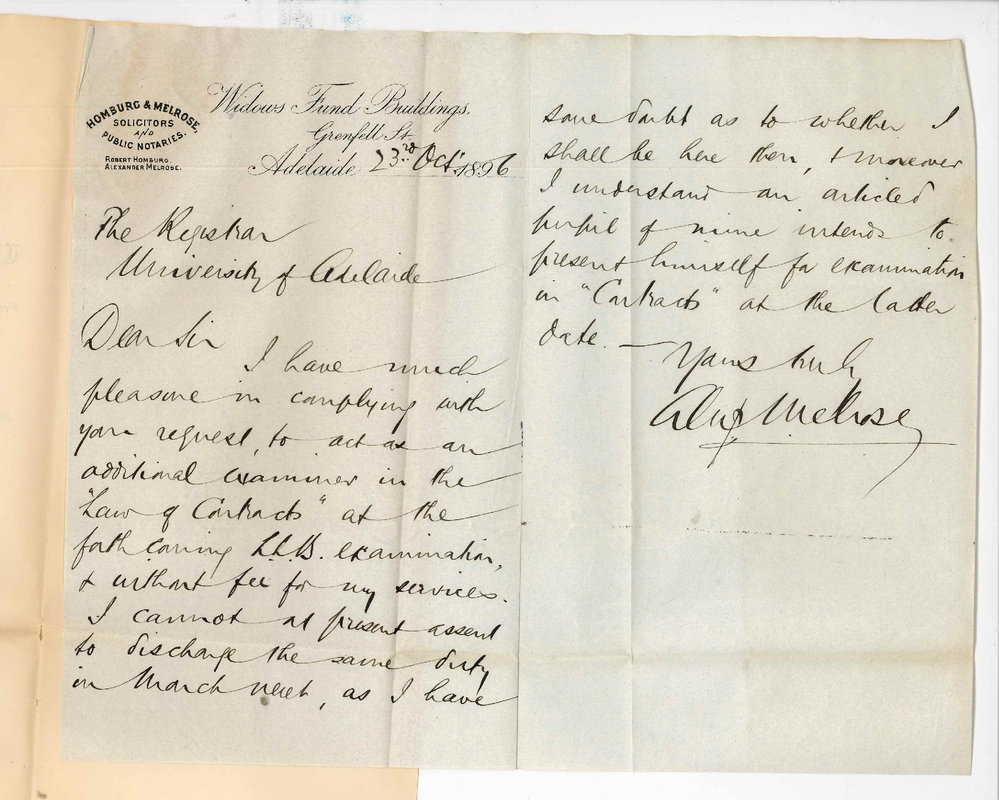 HOMBURG & MELROSE,
SOLICITORS
AND
PUBLIC NOTARIES.
ROBERT HOMBURG.
ALEXANDER MELROSE.
Widows Fund Buildings.
Grenfell St.
Adelaide 23rd Oct. 1896
The Registrar
University of Adelaide
Dear Sir
I have much
pleasure in complying with
your request, to act as an
additional examiner in the
"Law of Contracts" at the
forthcoming LL.B. examination,
& without fee for my services.
I cannot at present assent
to discharge the same duty
in March next, as I have
some doubt as to whether I
shall be here then, & moreover
I understand an articled
pupil of mine intends to
present himself for examination
in "Contracts" at the latter
date. —
Yours truly
Alex Melrose